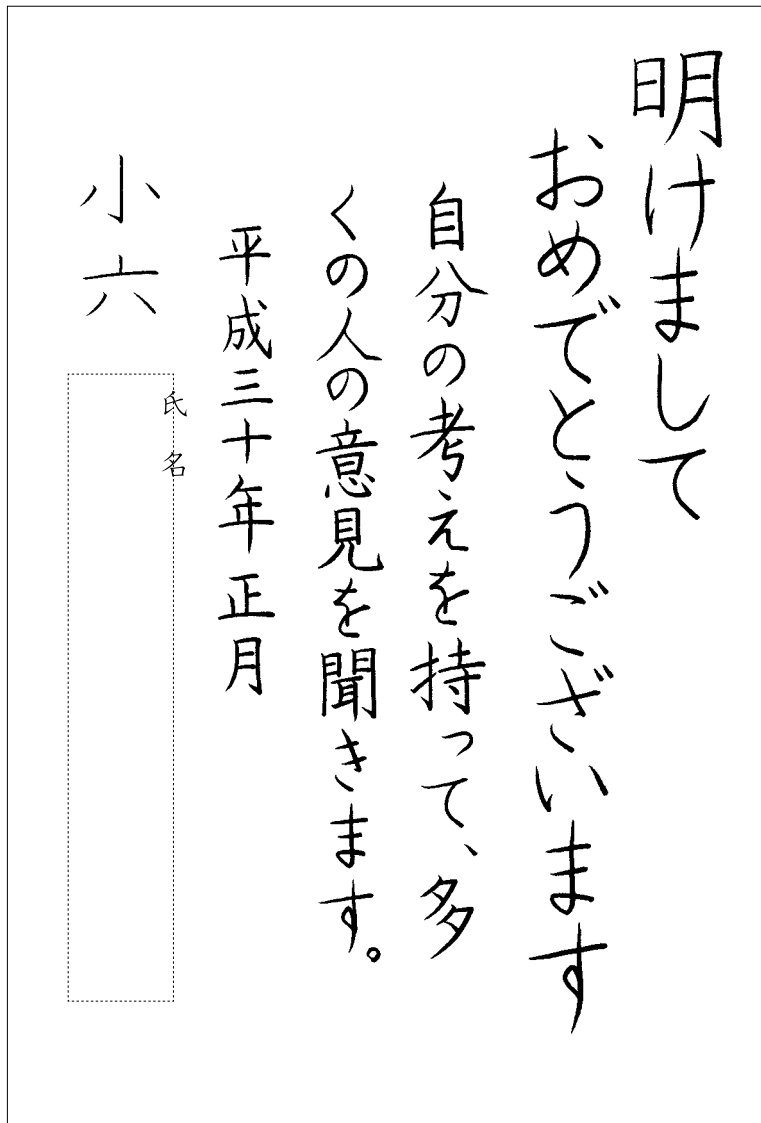 明けまして
おめでとうございます
自分の考えを持って、多
くの人の意見を聞きます。
平成三十年正月
小六
氏名